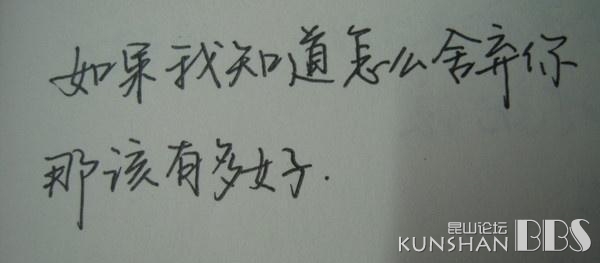 如果我知道怎么舍弃你
那该有多好.
昆山论坛
KUNSHAN BBS